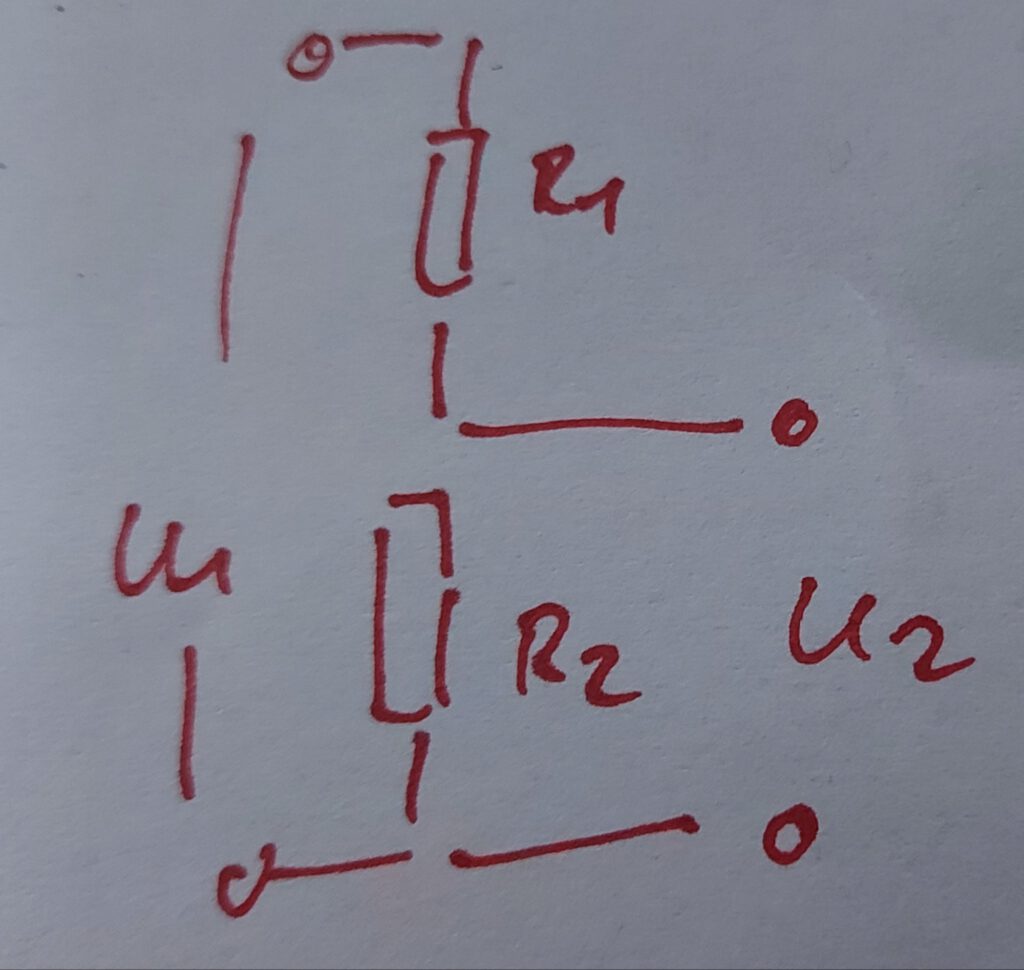 R1
U1
R2
U2